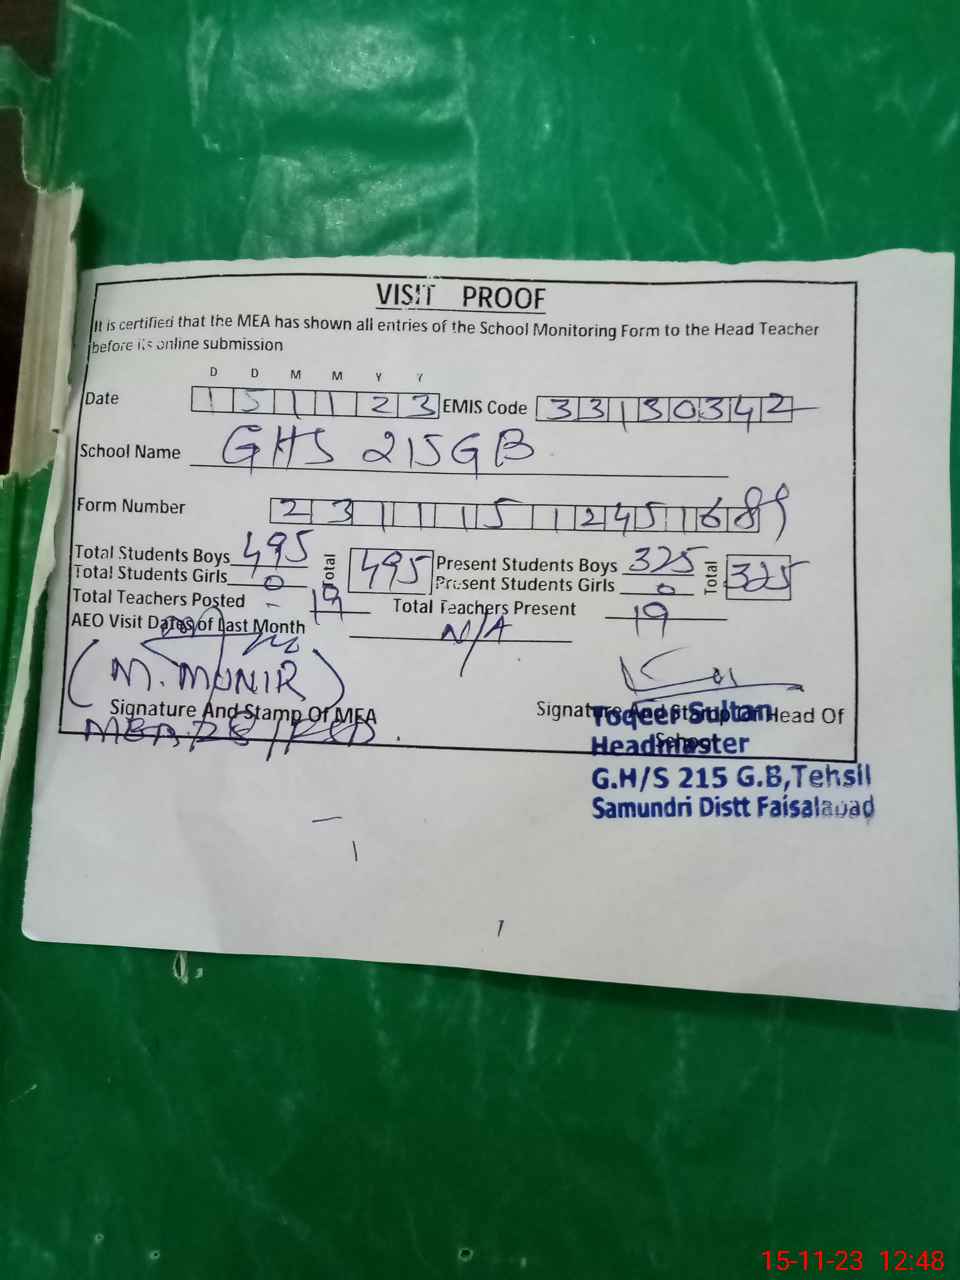 VISIT PROOF
It is certified that the MEA has shown all entries of the School Monitoring Form to the Head Teacher
before its online submission
D D M M Y Y
Date 15 11 23 EMIS Code 33130342
School Name GHS 215 GB
Form Number 23111512451689
Total Students Boys 495 Total 495 Present Students Boys 325 Total 325
Total Students Girls 0 Present Students Girls 0
Total Teachers Posted - 19 Total Teachers Present 19
AEO Visit Dates of Last Month N/A
(M. MUNIR)
Signature And Stamp Of MEA Signature And Stamp Of Head Of
School
MEA
Toqeer Sultan
Headmaster
G.H/S 215 G.B, Tehsil
Samundri Distt Faisalabad
1
15-11-23 12:48